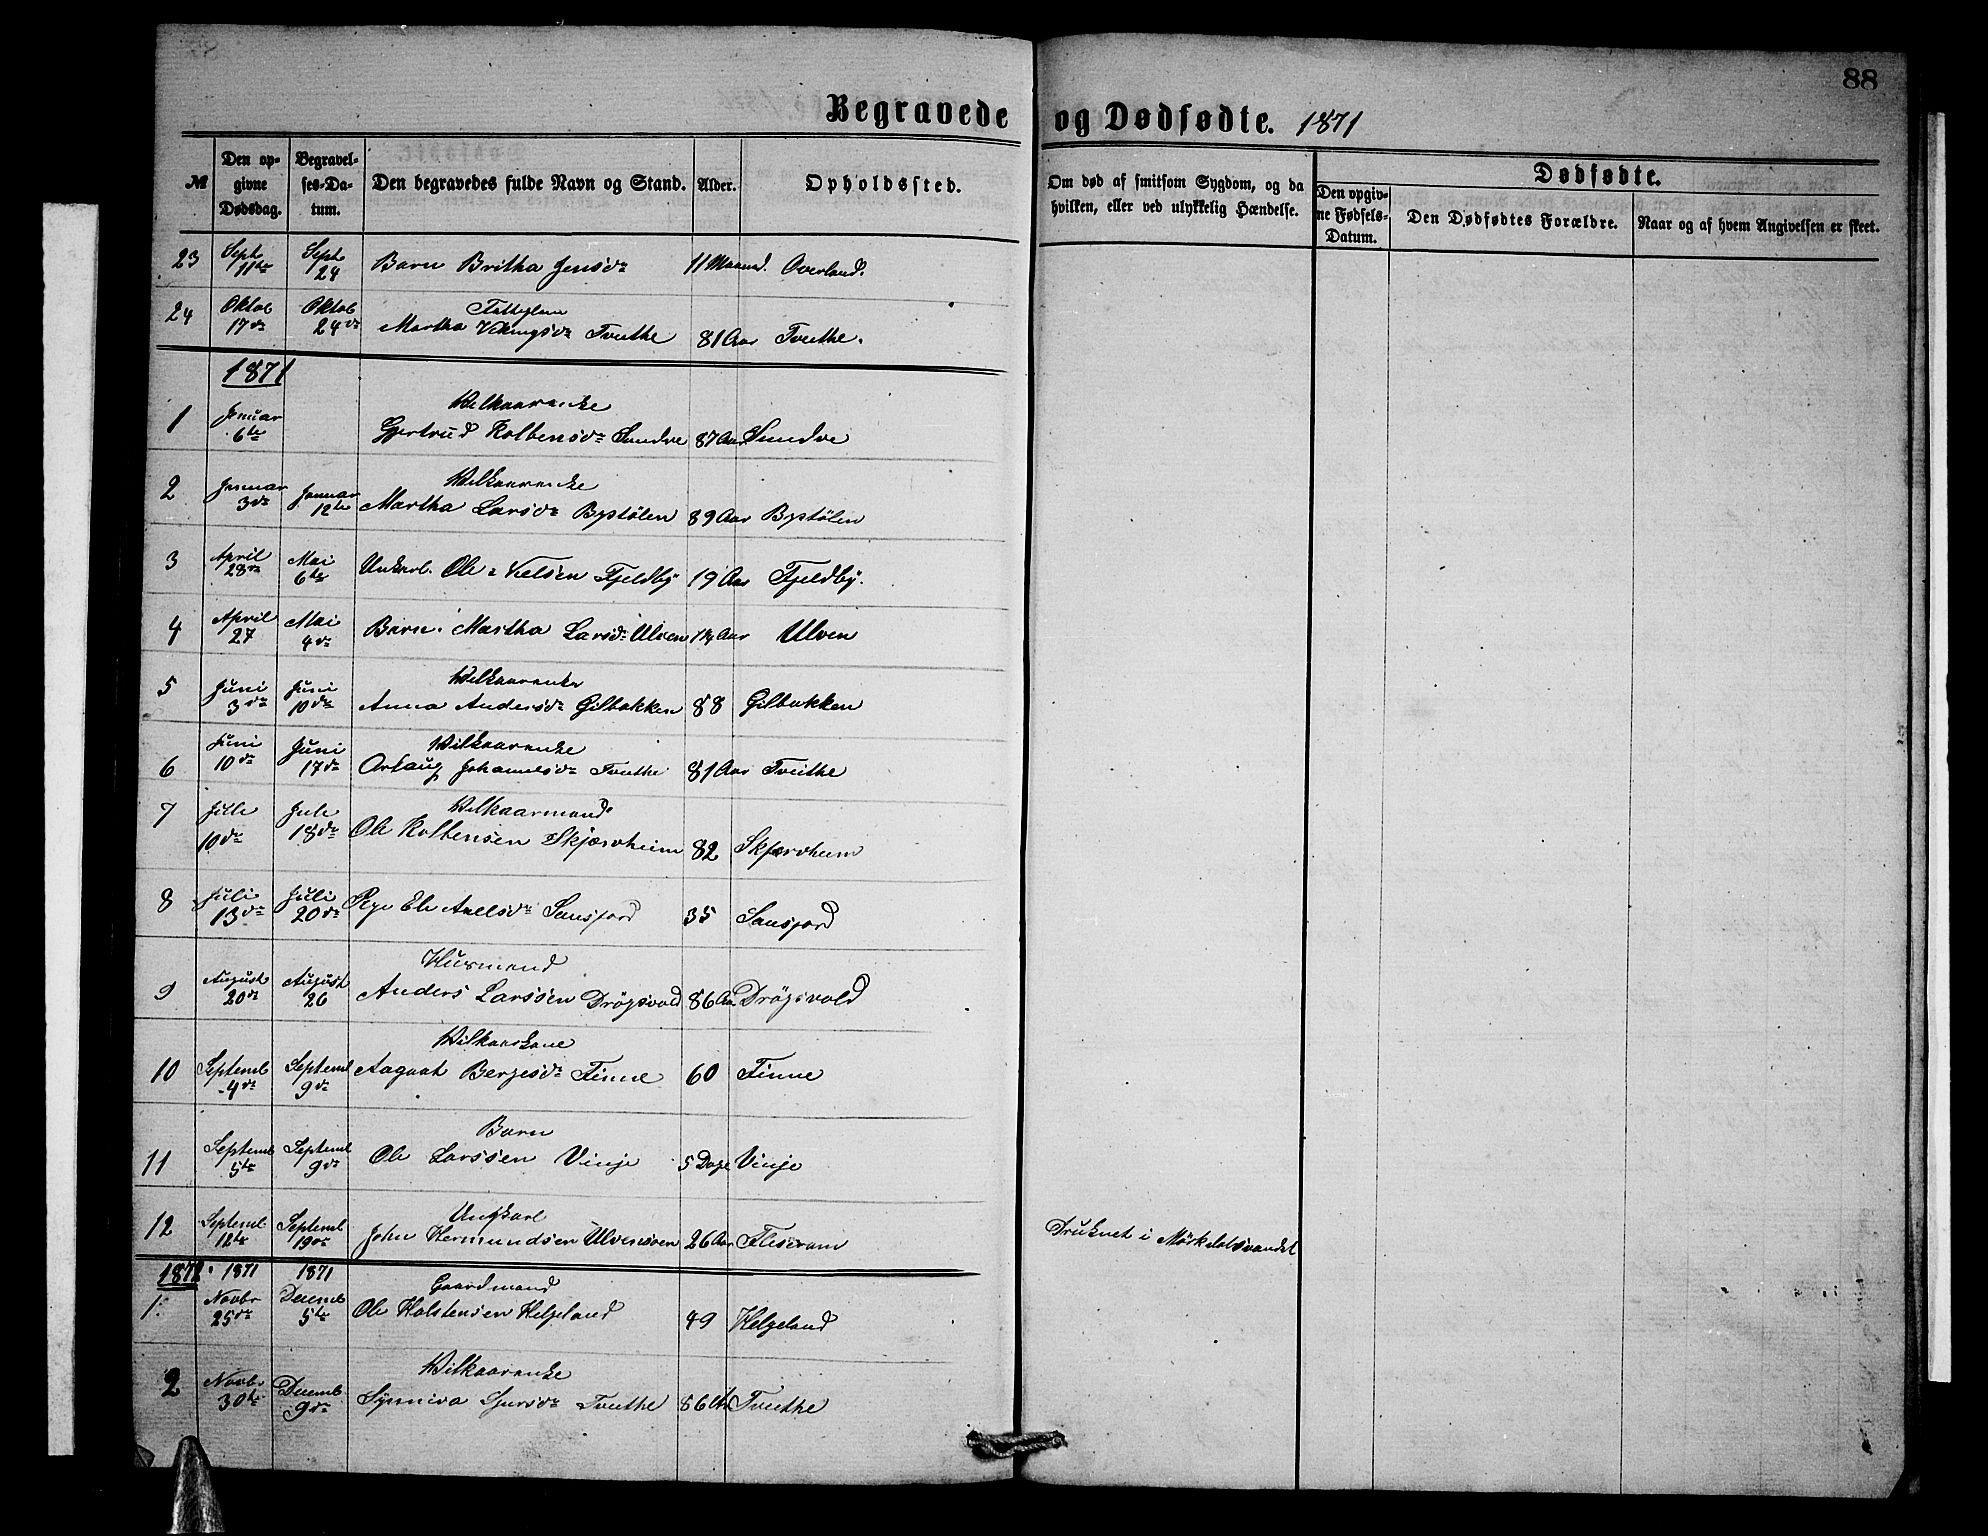 88
Begravede og Dødfødte. 1871
№
Den op-
givne
Dødsdag.
Begravel-
ses-Da-
tum.
Den begravedes fulde Navn og Stand.
Alder.
Opholdssted.
Om død af smitsom Sygdom, og da
hvilken, eller ved ulykkelig Hændelse.
Dødfødte.
Den opgiv-
ne Fødsels-
Datum.
Den Dødfødtes Forældre.
Naar og af hvem Angivelsen er skeet.
23 Sept 11te Sept 24 Barn Britha Jensdr 11 Maaned. Overland.
24 Oktob 17de Oktob 24de Fattiglem
Martha Vikingsdr Tvethe 81 Aar Tvethe.
1871
1 Januar 6te Vilkaarenke
Gjertrud Kolbensdr Sundve 87 Aar Sundve
2 Januar 3de Januar 12te Vilkaarenke
Martha Larsdr Bystølen 89 Aar Bystølen
3 April 28de Mai 6te Unkarl. Ole Nielsen Fjeldby 19 Aar Fjeldby.
4 April 27 Mai 4de Barn. Martha Larsdr Ulven Aar Ulven
5 Juni 3de Juni 10de Vilkaarenke
Anna Andersdr Gilbakken 88 Gilbakken
6 Juni 10de Juni 17de Vilkaarenke
Johannesdr Tvethe 81 Aar Tvethe
7 Julie 10de Jule 18de Vilkaarmand
Ole Kolbensen Skjærvheim 82 Skjærvheim
8 Juli 13de Juli 20de Pige Eli Axelsdr 35
9 August 20de August 26 Husmand
Anders Larssen Drøgsvold 86 Aar Drøgsvold
10 Septemb 4de Septemb 9de Vilkaarskone
Aagaat Bergesdr Finne 60 Finne
11 Septemb 5te Septemb 9de Barn
Ole Larssen Vinje 5 Dage Vinje
12 Septemb 12te Septemb 19de Ungkarl
John Hermundsen 26 Aar Druknet i Mørkdalsvandet
1872. 1871 1871
1. Novbr 25de Decemb 5te Gaardmand
Ole Holstensen Helgeland 49 Helgeland
2 Novbr 30te Decemb 9de Vilkaarenke
Synneva Sjursdr Tvethe 86 Aar Tvethe